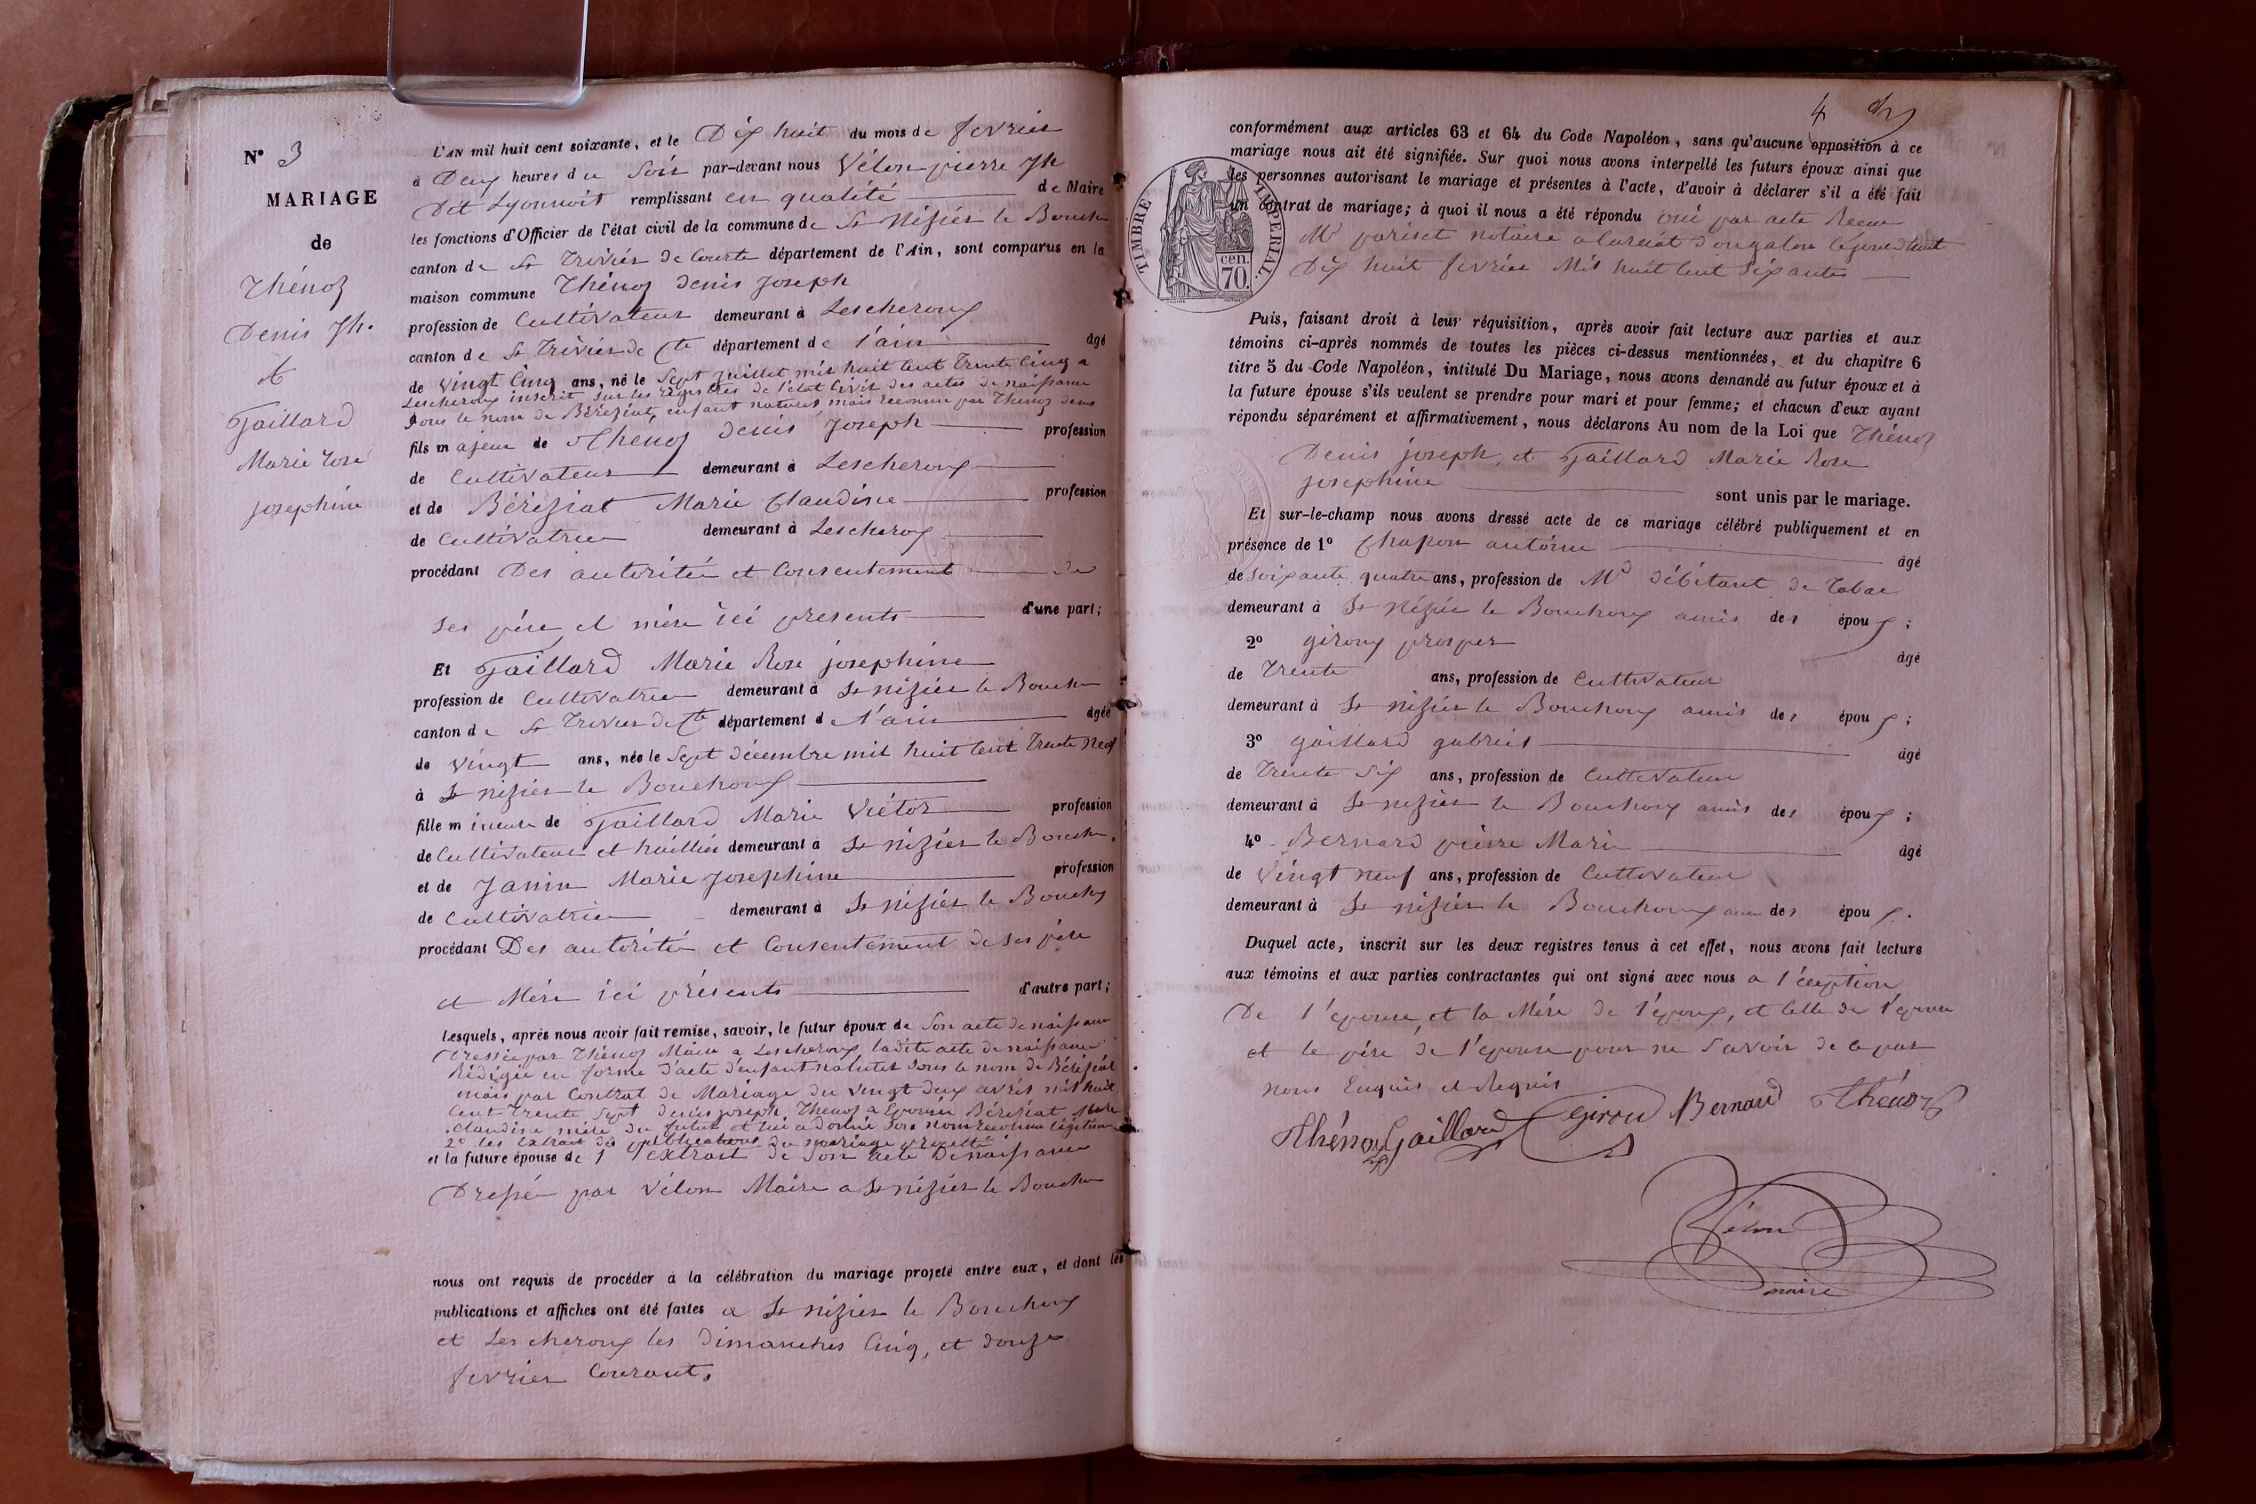 N° 3
MARIAGE
de
Thénoz
Denis Jh.
et
Gaillard
Marie rose
josephine
L'AN mil huit cent soixante, et le Dix huit du mois de fevrier
à Deux heures du Soir par-devant nous Vélon pierre Jh
Dit Lyonnois remplissant en qualité de Maire
les fonctions d'Officier de l'état civil de la commune de St Nizier le Bouch
canton de St Trivier de Courte département de l'Ain, sont comparus en la
maison commune Thénoz Denis Joseph
profession de Cultivateur demeurant à Lescheroux
canton de St Trivier de Cte département de l'ain âgé
de vingt Cinq ans, né le Sept juillet mil huit Cent Trente Cinq a
Lescheroux inscrit sur les registres de l'état Civil des actes de naissance
Sous le nom de Béréziat, enfant naturel mais reconnu par Thénoz denis
fils majeur de Thenoz Denis Joseph profession
de Cultivateur demeurant à Lescheroux
et de Béréziat Marie Claudine profession
de Cultivatrice demeurant à Lescheroux
procédant Des autorités et Consentement de
ses père et mère ici présents d'une part;
Et Gaillard Marie Rose josephine
profession de Cultivatrice demeurant à St nizier le Bouch
canton de St Trivier de Cte département de l'ain âgée
de vingt ans, née le Sept décembre mil huit Cent Trente neuf
à St nizier le Bouchoux
fille mineure de Gaillard Marie Victor profession
de Cultivateur et demeurant à St nizier le Bouch.
et de Janin Marie Josephine profession
de Cultivatrice demeurant à St nizier le Bouchx
procédant Des autorités et Consentement de ses père
et Mère ici présents d'autre part;
Lesquels, après nous avoir fait remise, savoir, le futur époux de Son acte de naissance
Dressée par Thénoz Maire a Lescheroux ladite acte de naissance
Rédigée en forme d'acte d'enfant naturel sous le nom de Béréziat
mais par Contrat de Mariage du vingt deux avril mil huit
Cent Trente Sept Denis joseph Thenoz a Epousée Béréziat Marie
Claudine mère du futur et lui a donné Son nom légitime
2° les Extrait des publications du mariage
et la future épouse de 1° l'extrait de Son acte De naissance
Dressé par Vélon Maire a St nizier le Bouch
nous ont requis de procéder à la célébration du mariage projeté entre eux, et dont les
publications et affiches ont été faites a St nizier le Bouchoux
et Lescheroux les Dimanches Cinq, et douze
fevrier Courant.
4
conformément aux articles 63 et 64 du Code Napoléon, sans qu'aucune opposition à ce
mariage nous ait été signifiée. Sur quoi nous avons interpellé les futurs époux ainsi que
les personnes autorisant le mariage et présentes à l'acte, d'avoir à déclarer s'il a été fait
un contrat de mariage; à quoi il nous a été répondu oui par acte Recu
Me pariset notaire
Dix huit fevrier Mil huit Cent Soixante
TIMBRE IMPÉRIAL.
cen.
70.
Puis, faisant droit à leur réquisition, après avoir fait lecture aux parties et aux
témoins ci-après nommés de toutes les pièces ci-dessus mentionnées, et du chapitre 6
titre 5 du Code Napoléon, intitulé Du Mariage, nous avons demandé au futur époux et à
la future épouse s'ils veulent se prendre pour mari et pour femme; et chacun d'eux ayant
répondu séparément et affirmativement, nous déclarons Au nom de la Loi que Thénoz
Denis joseph, et Gaillard Marie Rose
josephine sont unis par le mariage.
Et sur-le-champ nous avons dressé acte de ce mariage célébré publiquement et en
présence de 1° Chapon antoine âgé
de Soixante quatre ans, profession de Md débitant de Tabac
demeurant à St nizier le Bouchoux amis des époux;
2° giroux prosper âgé
de Trente ans, profession de Cultivateur
demeurant à St nizier le Bouchoux amis des époux;
3° gaillard gabriel âgé
de Trente Six ans, profession de Cultivateur
demeurant à St nizier le Bouchoux amis des époux;
4° Bernard pierre Marie âgé
de Vingt neuf ans, profession de Cultivateur
demeurant à St nizier le Bouchoux des époux.
Duquel acte, inscrit sur les deux registres tenus à cet effet, nous avons fait lecture
aux témoins et aux parties contractantes qui ont signé avec nous a l'éception
De l'épouse, et la Mère de l'époux, et Celle de l'épouse
et le père de l'epouse pour ne Savoir de a par
nous Enquis et Requis
Thénoz Gaillard Girou Bernard Thénoz
Vélon
maire